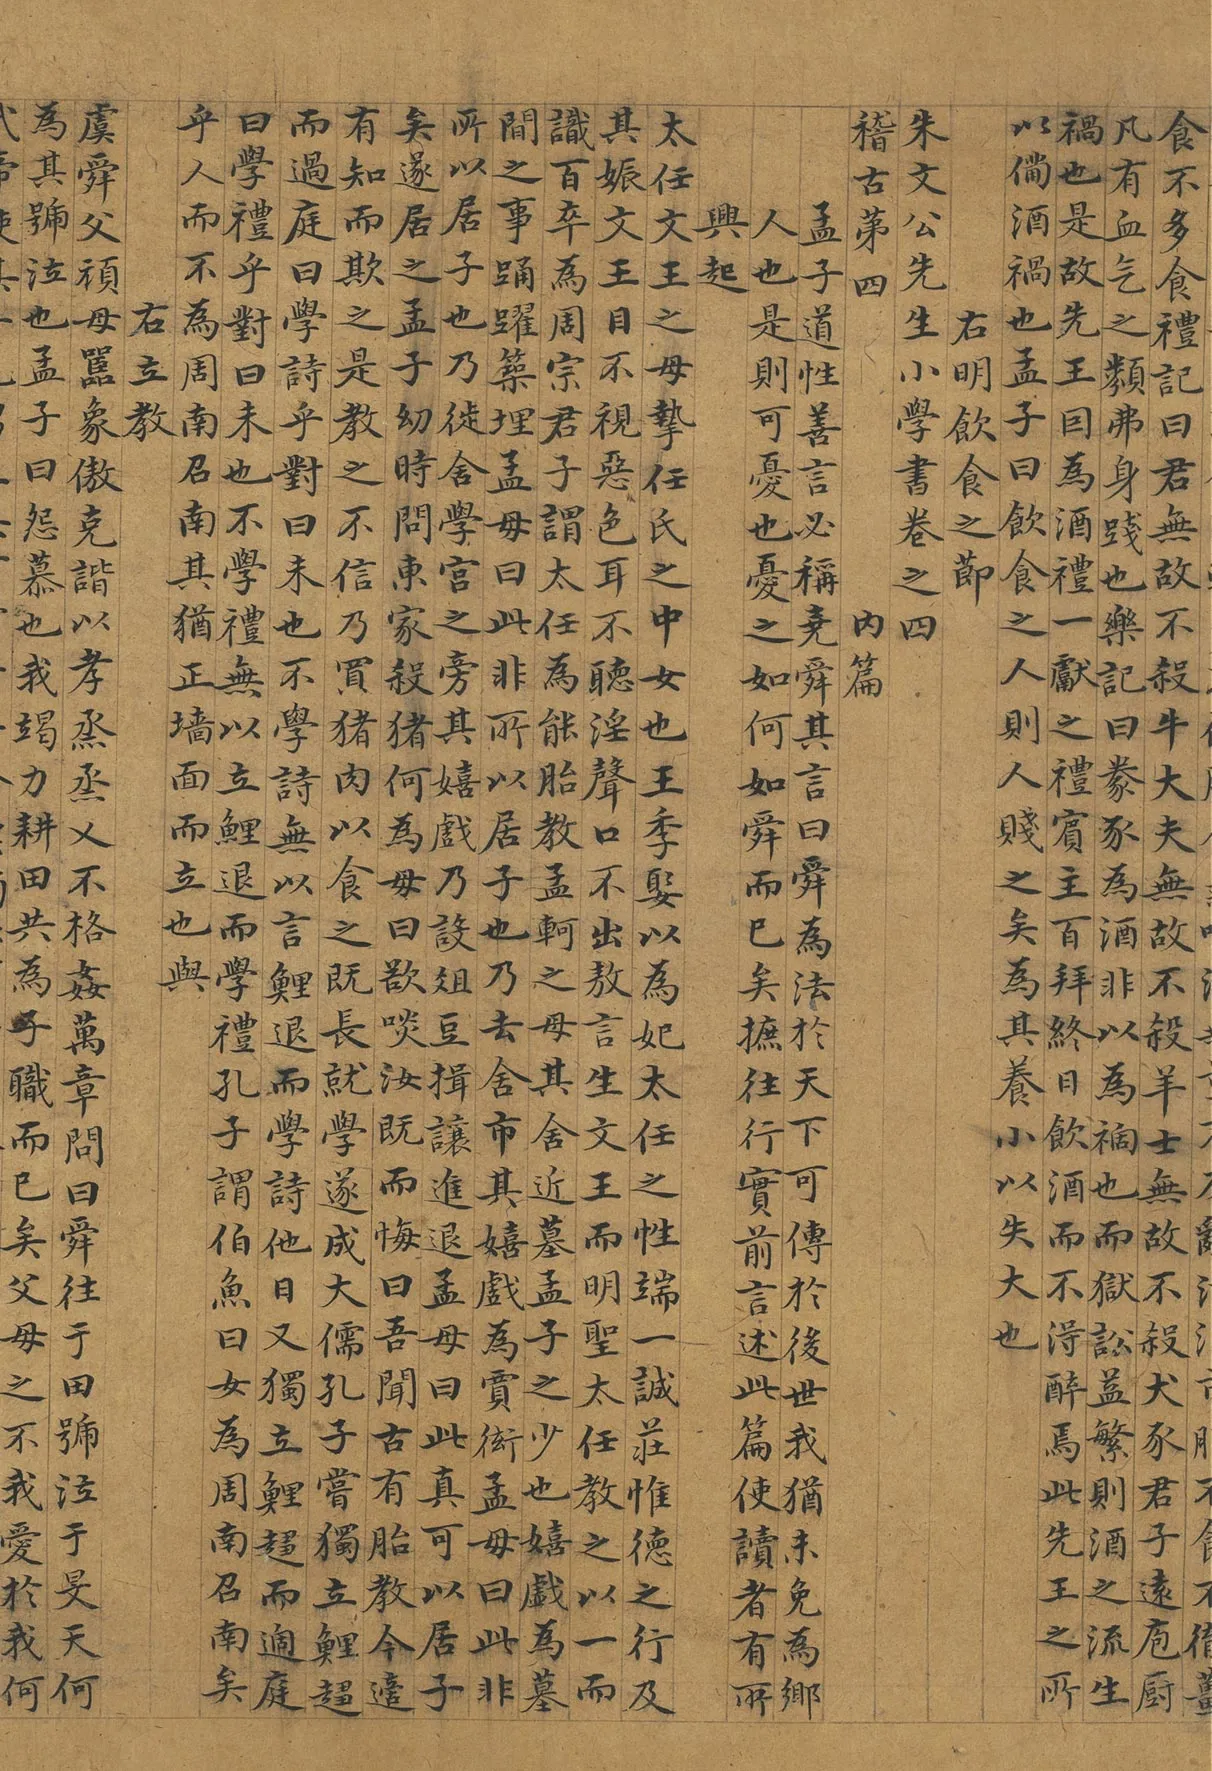 食不多食禮記曰君無故不殺牛大夫無故不殺羊士無故不殺犬豕君子遠庖厨
凡有血气之類弗身踐也樂記曰豢豕為酒非以為禍也而獄訟益繁則酒之流生
禍也是故先王因為酒禮一獻之禮賓主百拜終日飲酒而不淂醉焉此先王之所
以備酒禍也孟子曰飲食之人則人賤之矣為其養小以失大也
右明飲食之節
朱文公先生小學書卷之四
稽古第四　內篇
孟子道性善言必稱堯舜其言曰舜為法於天下可傳於後世我猶未免為鄉
人也是則可憂也憂之如何如舜而已矣摭往行實前言述此篇使讀者有所
興起
太任文王之母摯任氏之中女也王季娶以為妃太任之性端一誠莊惟德之行及
其娠文王目不視惡色耳不聽淫聲口不出敖言生文王而明聖太任教之以一而
識百卒為周宗君子謂太任為能胎教孟軻之母其舍近墓孟子之少也嬉戲為墓
間之事踊躍築埋孟母曰此非所以居子也乃去舍市其嬉戲為賈衒孟母曰此非
所以居子也乃徙舍學宮之旁其嬉戲乃設俎豆揖讓進退孟母曰此真可以居子
矣遂居之孟子幼時問東家殺猪何為母曰欲啖汝既而悔曰吾聞古有胎教今適
有知而欺之是教之不信乃買猪肉以食之既長就學遂成大儒孔子嘗獨立鯉趨
而過庭曰學詩乎對曰未也不學詩無以言鯉退而學詩他日又獨立鯉趨而過庭
曰學禮乎對曰未也不學禮無以立鯉退而學禮孔子謂伯魚曰女為周南召南矣
乎人而不為周南召南其猶正墻面而立也與
右立教
虞舜父頑母嚚象傲克諧以孝烝烝乂不格姦萬章問曰舜往于田號泣于旻天何
為其號泣也孟子曰怨慕也我竭力耕田共為子職而已矣父母之不我愛於我何